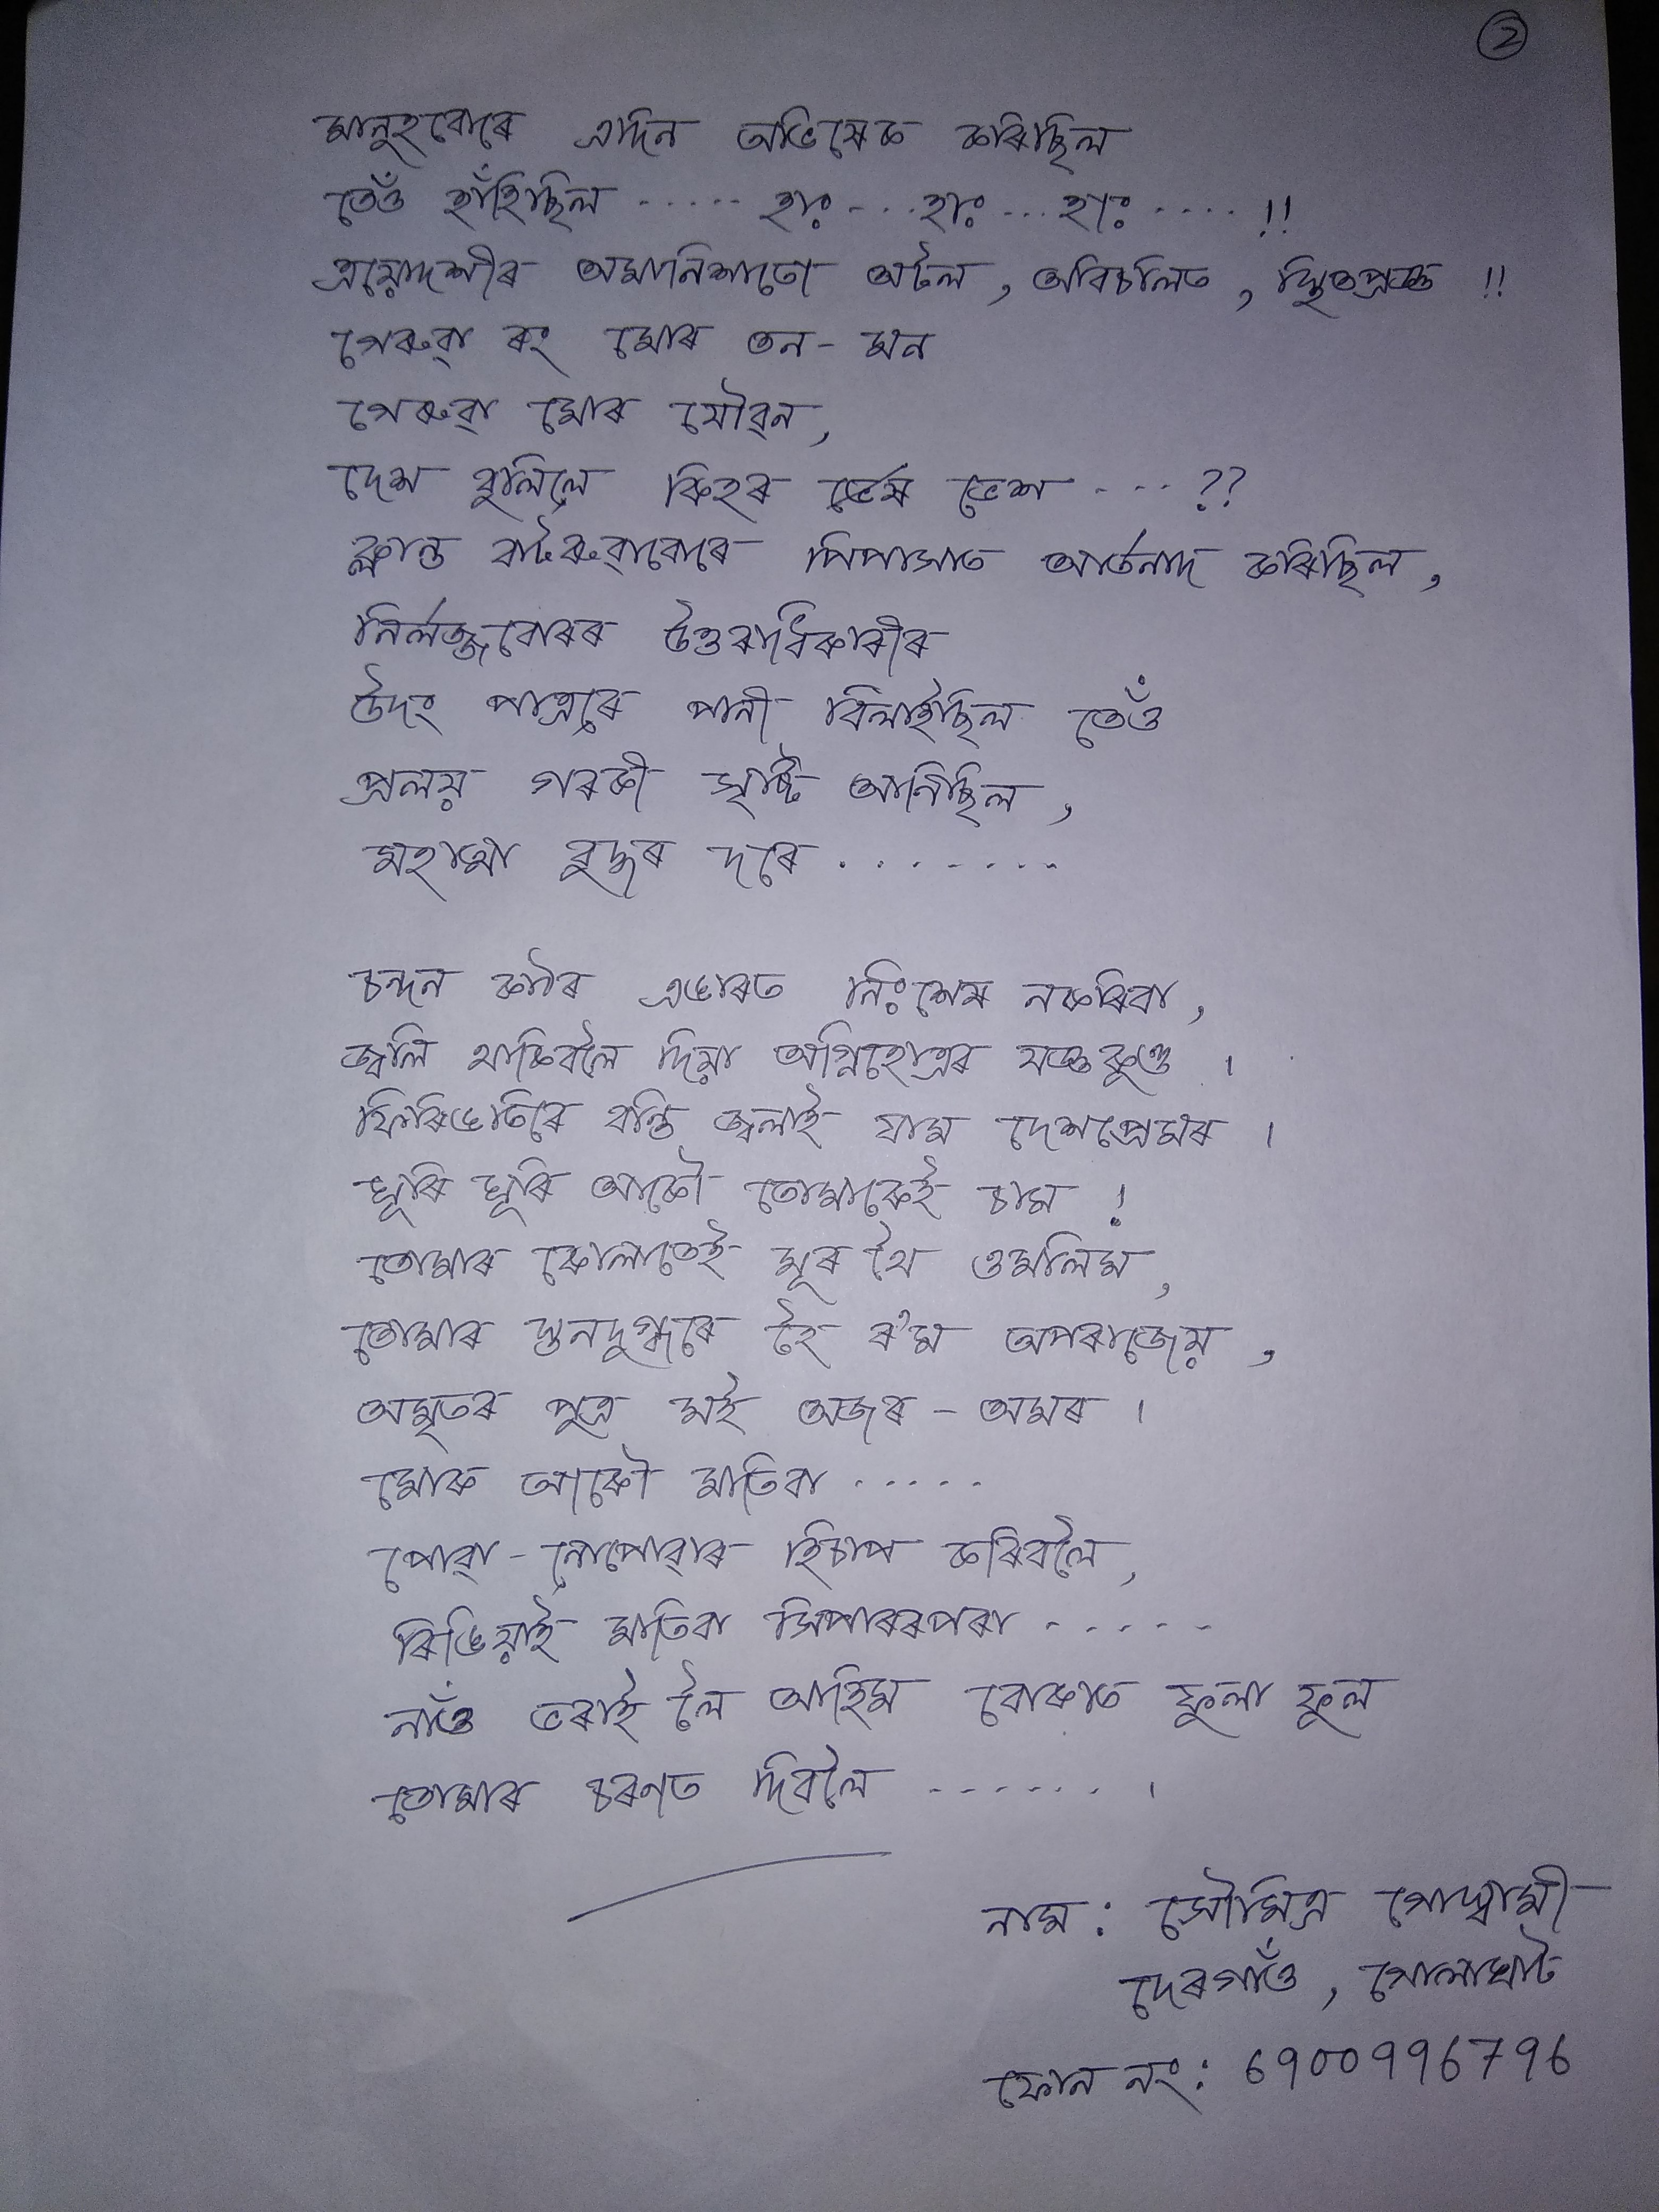 ২
মানুহবোৰে এদিন অভিষেক কৰিছিল
তেওঁ হাঁহিছিল ..... হাঃ ... হাঃ ... হাঃ .... !!
ত্ৰয়োদশীৰ অমানিশাতো অটল , অবিচলিত , স্থিতপ্ৰজ্ঞ !!
গেৰুৱা ৰং মোৰ তন - মন
গেৰুৱা মোৰ যৌৱন ,
দেশ বুলিলে কিহৰ ভেষ ভেশ ... ??
ক্লান্ত বাটৰুৱাবোৰে পিপাসাত আৰ্তনাদ কৰিছিল ,
নিৰ্লজ্জবোৰৰ উত্তৰাধিকাৰীৰ
উদং পাত্ৰৰে পানী বিলাইছিল তেওঁ
প্ৰলয় গৰকী সৃষ্টি আনিছিল ,
মহাত্মা বুদ্ধৰ দৰে ........
চন্দন কাঠৰ এঙাৰত নিঃশেষ নকৰিবা ,
জ্বলি থাকিবলৈ দিয়া অগ্নিহোত্ৰৰ যজ্ঞকুণ্ড ।
ফিৰিঙতিৰে বন্তি জ্বলাই যাম দেশপ্ৰেমৰ ।
ঘূৰি ঘূৰি আকৌ তোমাকেই চাম !
তোমাৰ কোলাতেই মূৰ থৈ ওমলিম ,
তোমাৰ স্তনদুগ্ধৰে হৈ ৰ'ম অপৰাজেয় ,
অমৃতৰ পুত্ৰ মই অজৰ - অমৰ ।
মোক আকৌ মাতিবা .....
পোৱা - নোপোৱাৰ হিচাপ কৰিবলৈ ,
ৰিঙিয়াই মাতিবা সিপাৰৰপৰা .....
নাওঁ ভৰাই লৈ আহিম বোকাত ফুলা ফুল
তোমাৰ চৰণত দিবলৈ ...... ।
নাম : সৌমিত্ৰ গোস্বামী
দেৰগাওঁ , গোলাঘাট
ফোন নং : 6900996796